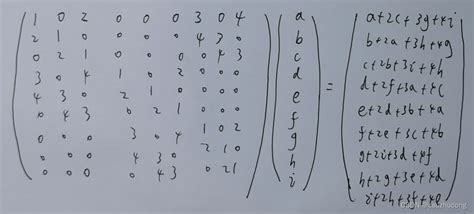 1 0 2 0 0 0 3 0 4 a a+2c+3g+4i
2 1 0 0 0 0 4 3 0 b b+2a+3h+4g
0 2 1 0 0 0 0 4 3 c c+2b+3i+4h
3 0 4 1 0 2 0 0 0 d d+2f+3a+4c
4 3 0 2 1 0 0 0 0 e = e+2d+3b+4a
0 4 3 0 2 1 0 0 0 f f+2e+3c+4b
0 0 0 3 0 4 1 0 2 g g+2i+3d+4f
0 0 0 4 3 0 2 1 0 h h+2g+3e+4d
0 0 0 0 4 3 0 2 1 i i+2h+3f+4e